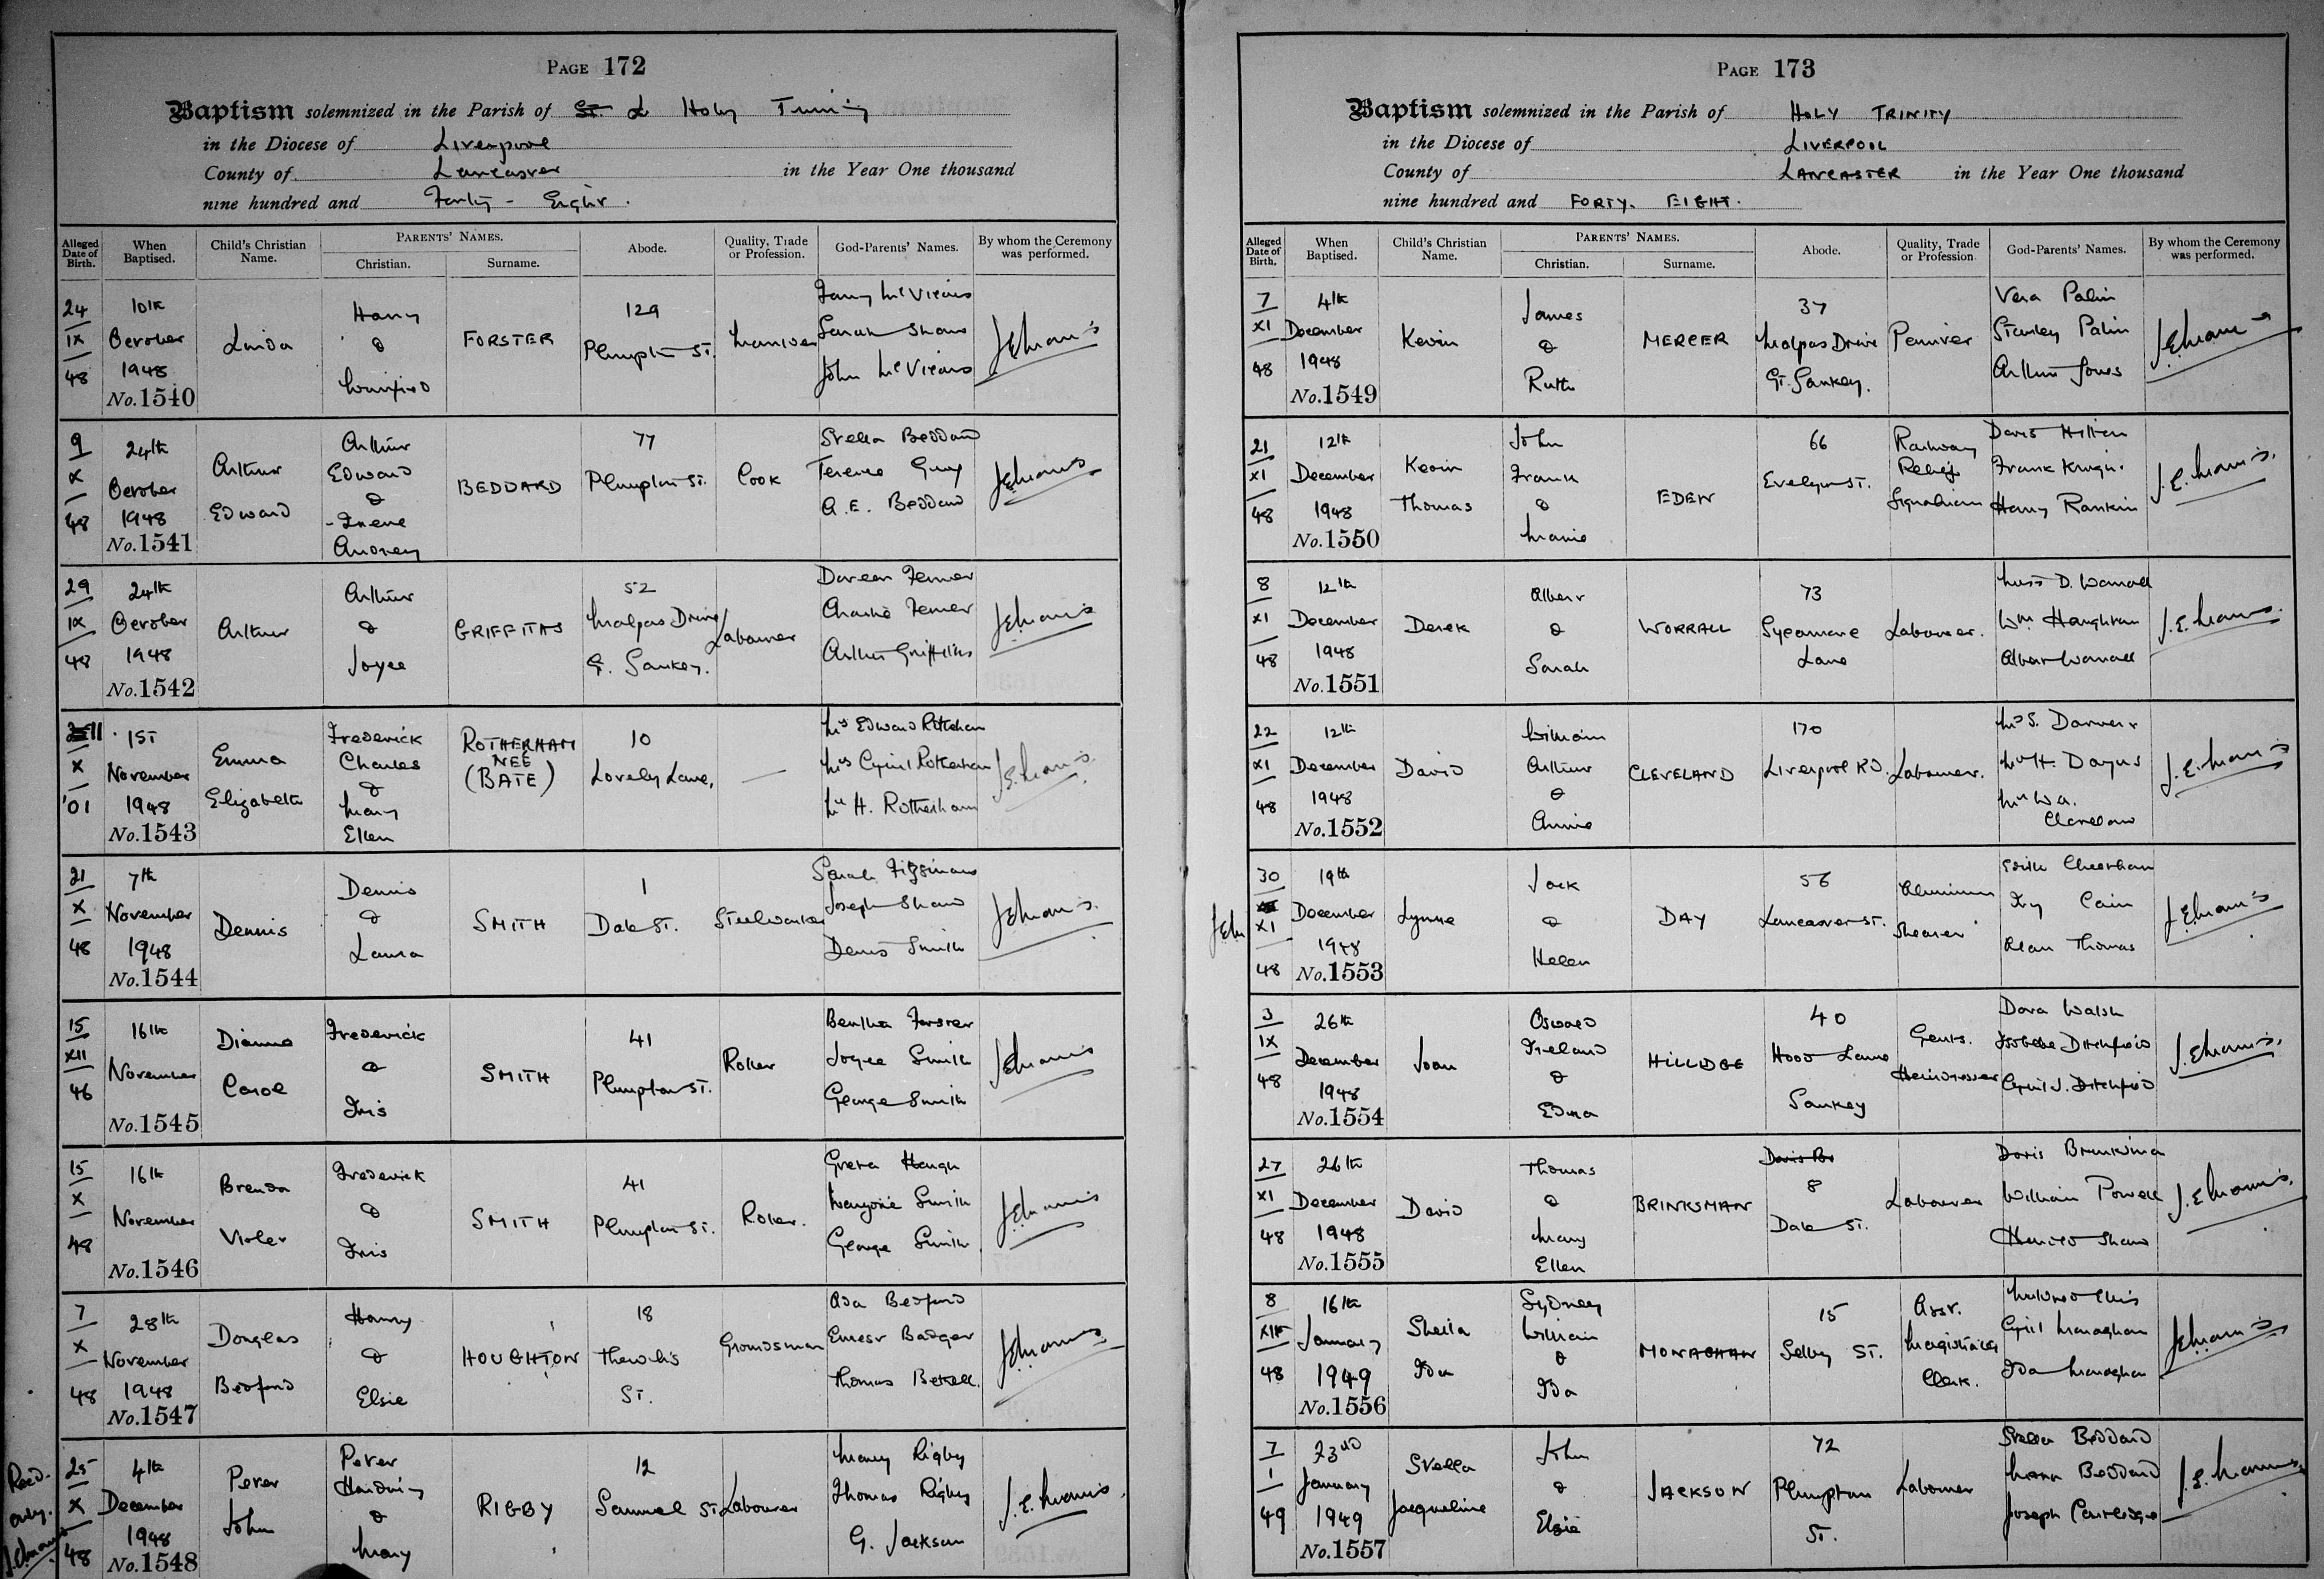 PAGE 172
Baptism solemnized in the Parish of St. L Holy Trinity
in the Diocese of Liverpool
County of Lancaster in the Year One thousand
nine hundred and Forty - Eight.
Alleged Date of Birth. When Baptised. Child's Christian Name. PARENTS' NAMES. Christian. Surname. Abode. Quality, Trade or Profession. God-Parents' Names. By whom the Ceremony was performed.
24 IX 48
10th October 1948
No. 1540
Linda
Harry & Winifred
FORSTER
129 Plumpton St.
Sarah Shaw
9 X 48
24th October 1948
No. 1541
Arthur Edward
Arthur Edward & Irene Audrey
BEDDARD
77 Plumpton St.
Cook
Stella Beddard
Terence Guy
A. E. Beddard
29 IX 48
24th October 1948
No. 1542
Arthur
Arthur & Joyce
GRIFFITHS
52 Malpas Drive G. Sankey.
Labourer
Doreen Fenner
Charlie Fenner
Arthur Griffiths
11 X '01
1st November 1948
No. 1543
Emma Elizabeth
Frederick Charles & Mary Ellen
ROTHERHAM NEE (BATE)
10 Lovely Lane,
—
Mrs Edward Rotherham
Mrs Cyril Rotherham
Mr H. Rotherham
21 X 48
7th November 1948
No. 1544
Dennis
Dennis & Laura
SMITH
1 Dale St.
Steelworker
Sarah Fitzsimons
Joseph Shaw
Denis Smith
15 XII 46
16th November
No. 1545
Dianne Carol
Frederick & Iris
SMITH
41 Plumpton St.
Roller
Bertha Forster
Joyce Smith
George Smith
15 X 48
16th November
No. 1546
Brenda Violet
Frederick & Iris
SMITH
41 Plumpton St.
Roller.
Greta Haugh
Marjorie Smith
George Smith
7 X 48
28th November 1948
No. 1547
Douglas Bedford
Harry & Elsie
HOUGHTON
18 Thewlis St.
Groundsman
Ada Bedford
Ernest Badger
Thomas Bethell.
Recd. only.
25 X 48
4th December 1948
No. 1548
Peter John
Peter Harding & Mary
RIGBY
12 Samuel St.
Labourer
Mary Rigby
Thomas Rigby
G. Jackson
PAGE 173
Baptism solemnized in the Parish of HOLY TRINITY
in the Diocese of LIVERPOOL
County of LANCASTER in the Year One thousand
nine hundred and FORTY. EIGHT.
Alleged Date of Birth. When Baptised. Child's Christian Name. PARENTS' NAMES. Christian. Surname. Abode. Quality, Trade or Profession God-Parents' Names. By whom the Ceremony was performed.
7 XI 48
4th December 1948
No. 1549
Kevin
James & Ruth
MERCER
37 Malpas Drive Gt. Sankey.
Vera Palin
Stanley Palin
Arthur Jones
21 XI 48
12th December 1948
No. 1550
Kevin Thomas
John Frank & Marie
EDEN
66 Evelyn St.
Railway Relief Signalman
Doris Hilton
Harry Rankin
8 XI 48
12th December 1948
No. 1551
Derek
Albert & Sarah
WORRALL
73 Sycamore Lane
Labourer.
Miss D. Worrall
Wm Haughton
Albert Worrall
22 XI 48
12th December 1948
No. 1552
David
William Arthur & Annie
CLEVELAND
170 Liverpool Rd.
Labourer.
30 XI 48
19th December 1948
No. 1553
Lynne
Jack & Helen
DAY
56 Lancaster St.
Aluminium Shearer
Edith Cheetham
Ivy Cain
Alan Thomas
3 IX 48
26th December 1948
No. 1554
Joan
Oswald Ireland & Edna
HILLIDGE
40 Hood Lane Sankey
Gents. Hairdresser
Dora Walsh
Isobella Ditchfield
Cyril J. Ditchfield
27 XI 48
26th December 1948
No. 1555
David
Thomas & Mary Ellen
BRINKSMAN
8 Dale St.
Labourer
Doris Brinksman
William Powell
Harold Shaw
8 XII 48
16th January 1949
No. 1556
Sheila Ida
Sydney William & Ida
MONAGHAN
15 Selby St.
Asst. Magistrates Clerk.
Mildred Ellis
Cyril Monaghan
Ida Monaghan
7 1 49
23rd January 1949
No. 1557
Stella Jacqueline
John & Elsie
JACKSON
72 Plumpton St.
Labourer
Stella Beddard
Joseph Cartlidge